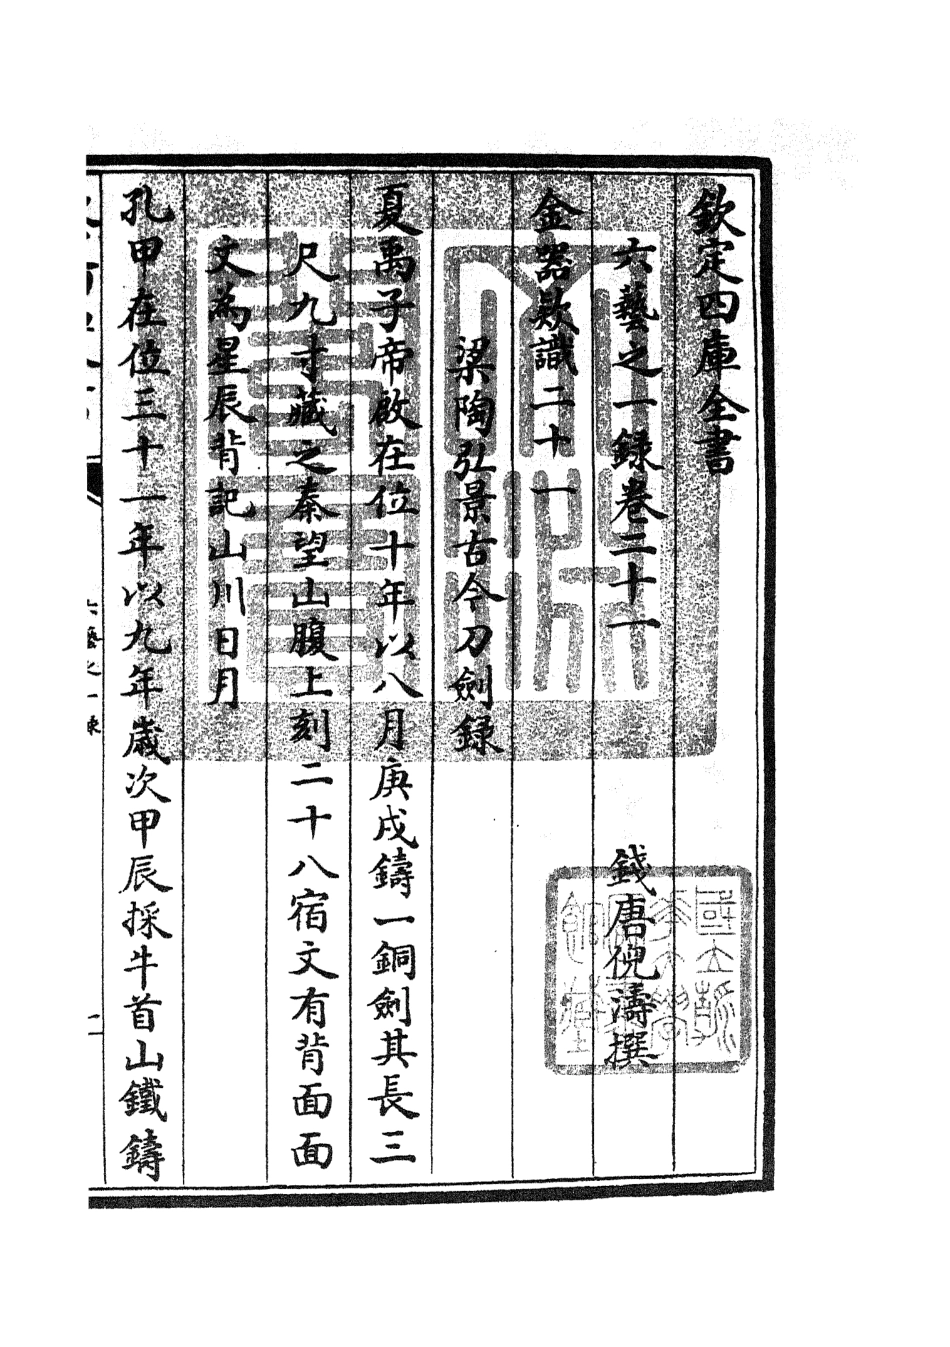 欽定四庫全書
六藝之一録卷二十一
錢唐倪濤撰
金器款識二十一
梁陶弘景古今刀劍録
夏禹子帝啟在位十年以八月庚戌鑄一銅劍其長三
尺九寸藏之秦望山腹上刻二十八宿文有背面面
文為星辰背記山川日月
孔甲在位三十一年以九年歲次甲辰採牛首山鐵鑄
六藝之一録